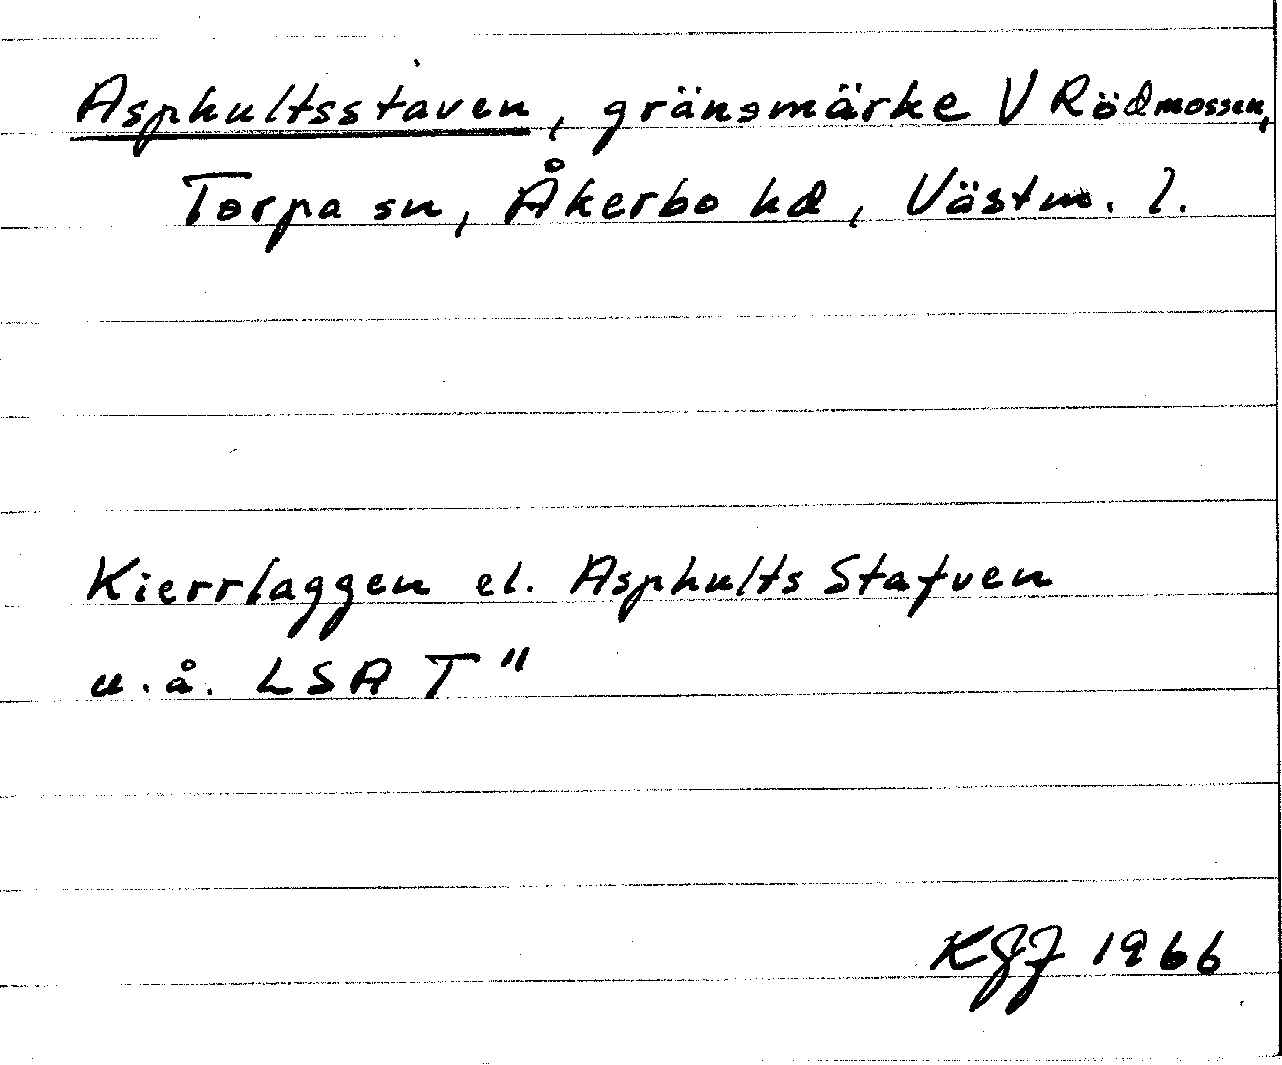 Asphultsstaven, gränsmärke V Rödmossen,
Torpa sn, Åkerbo hd, Västm. l.
Kierrlaggen el. Asphults Stafven
u.å. LSA T"
KGJ 1966